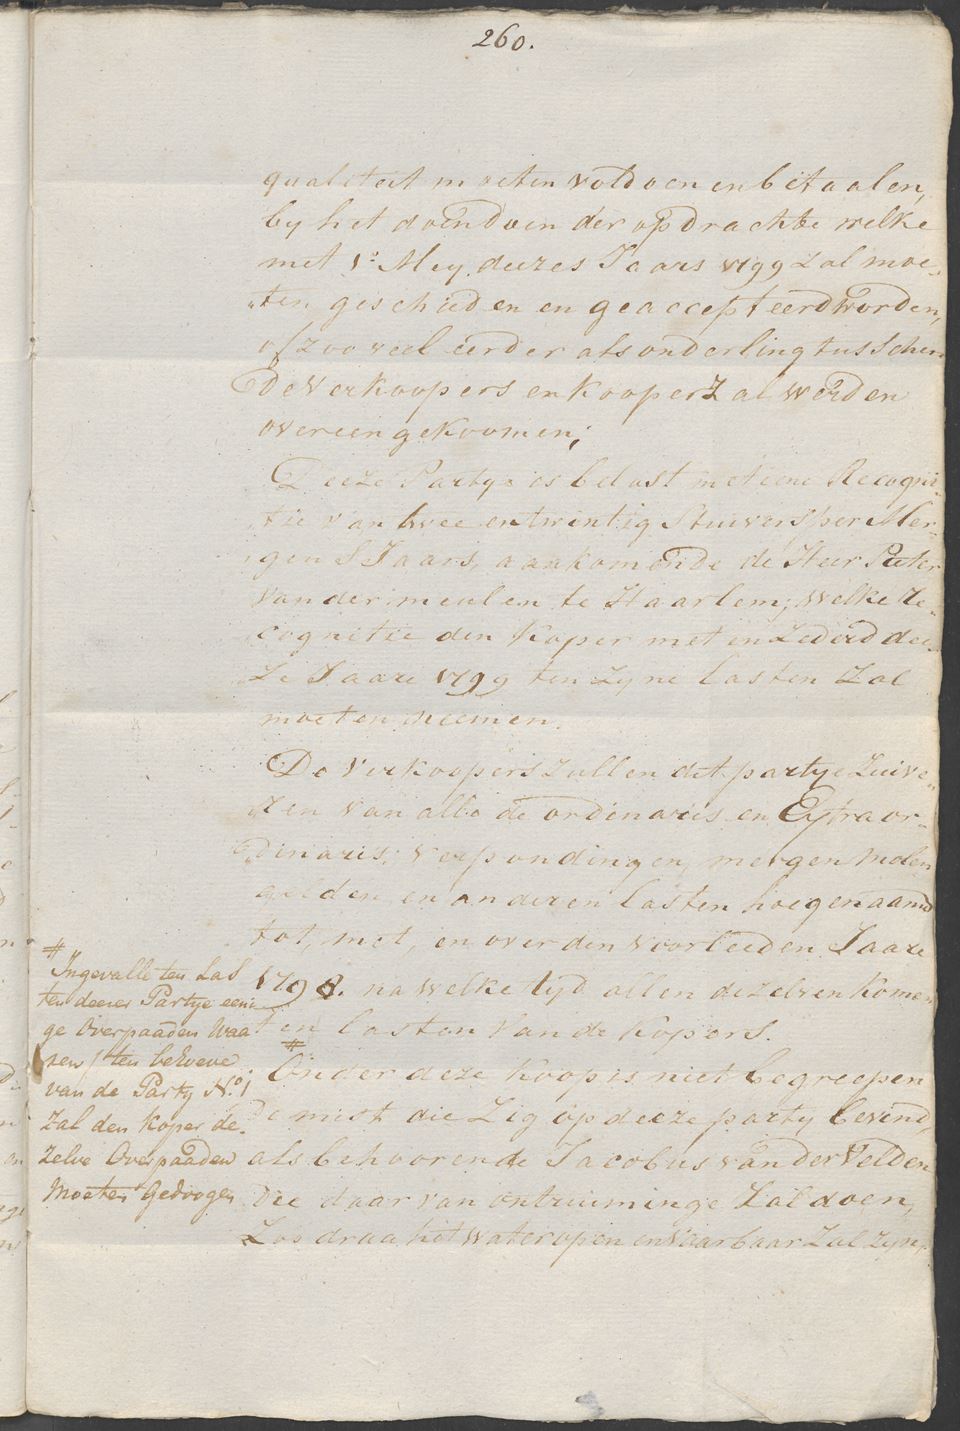 260.
qualiteit moeten voldoen en betaalen,
by het doendoen der opdrachte welke
met 1.o Mey deezes Jaars 1799 zal moe„
„ten geschieden en geaccepteerd worden,
of zoo veel eerder als onderling tusschen
de Verkoopers en kooper zal werden
overeengekoomen;
Deeze Partye is belast met eene Recogni„
tie van twee entwintig Stuivers per Mer„
„gen SJaars, aankomende de Heer Pieter
van der meulen te Haarlem; welke Re„
cognitie den Koper met en zederd dee„
ze Jaare 1799 ten zyne lasten zal
moeten neemen.
De Verkoopers zullen dit partye zuive„
ren van alle de ordinaris en Extraor„
„dinaris; verpondingen, mergen Molen
gelden en anderen lasten hoegenaamd
tot, met, en over den voorleeden Jaare
1798. na welke tyd allen dezelven komen
ten lasten van de Kopers.
# Onder deze koop is niet begreepen
De mist die zig op deeze party bevind,
als behoorende Jacobus van der Velden
Die daar van ontruiminge zal doen,
Zoo draa het water open en vaarbaar zal zyn,
# Ingevalle ten Las
ten deeser Partye eeni
ge Overpaaden waa
ren / ten behoeve
van de Party N.o 1
zal den Koper de„
zelve Overpaaden
Moeten Gedoogen